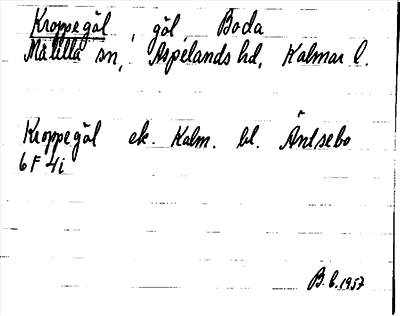 Kroppegöl, göl, Boda
Målilla sn, Aspelands hd, Kalmar l.
Kroppegöl ek. Kalm. bl. Äntsebo
6F4i
B.C. 1957